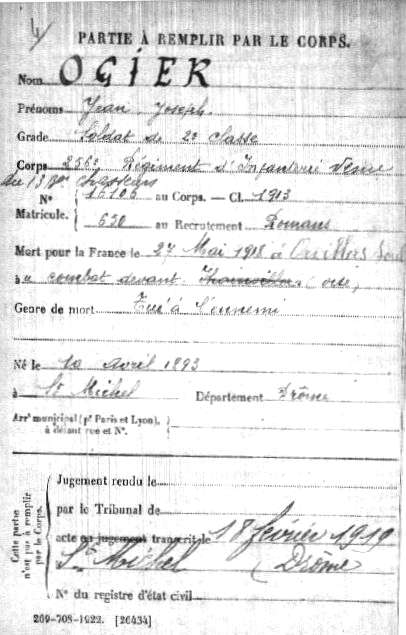 4
PARTIE À REMPLIR PAR LE CORPS.
Nom OGIER
Prénoms Jean Joseph.
Grade Soldat de 2e classe
Corps 256e Régiment d'Infanterie
du 13 Bon Chasseurs
N° 15106 au Corps. — Cl. 1913
Matricule. 630 au Recrutement Romans
Mort pour la France le 27 Mai 1918 à
à u combat devant (oise)
Genre de mort Tué à l'ennemi
Né le 10 avril 1893
à St Michel Département Drôme
Arrt municipal (pr Paris et Lyon),
à défaut rue et N°.
Cette partie n'est pas à remplir par le Corps.
Jugement rendu le
par le Tribunal de
acte ou jugement transcrit le 18 février 1919
St Michel (Drôme
N° du registre d'état civil
269-708-1922. [26434]